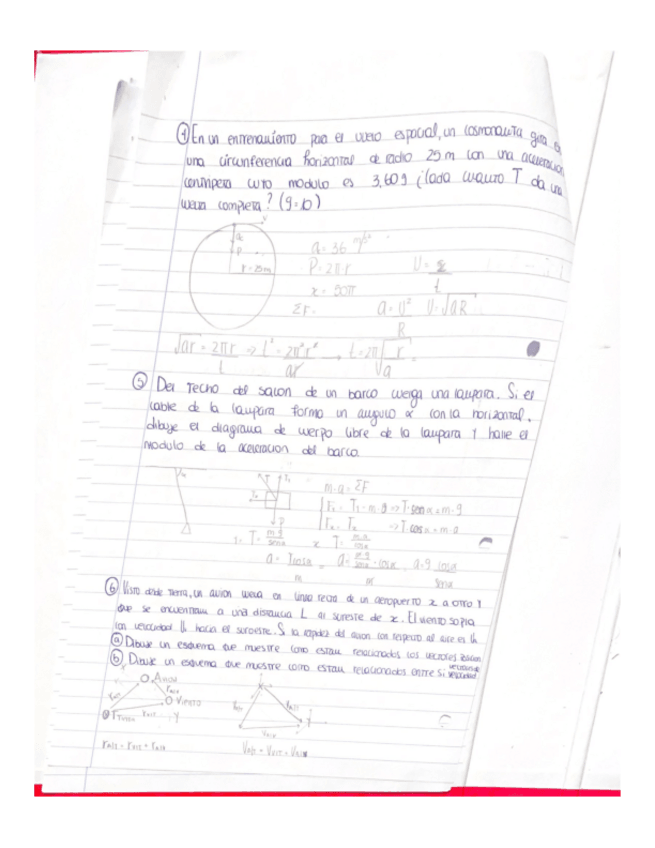 ① En un entrenamiento para el vuelo espacial, un cosmonauta gira en
una circunferencia horizontal de radio 25 m con una aceleracion
centripeta cuyo modulo es 3,60 g ¿Cada cuanto T da una
vuelta completa? (g=10)
v
ac
P
r=25m
a = 36 m/s²
P = 2π r
x = 50π
Σr =
V = x/t
a = V²/R V = √aR
√ar = 2πr/t → t² = 2π²r²/ar → t = 2π√r/√a =
⑤ Del techo del salon de un barco cuelga una lampara. Si el
cable de la lampara forma un angulo α con la horizontal,
dibuje el diagrama de cuerpo libre de la lampara y halle el
modulo de la aceleracion del barco.
m·a = ΣF
T₁ - m·g => T·senα = m·g
Tx => T·cosα = m·a
P
T = m·g/senα x T = m·a/cosα
a = Tcosα/m a = m·g/senα · cosα/m a = g cosα/senα
⑥ Visto desde tierra, un avion vuela en linea recta de un aeropuerto x a otro y
que se encuentran a una distancia L al sureste de x. El viento sopla
con velocidad hacia el suroeste. S la rapidez del avion con respecto al aire es
ⓐ Dibuje un esquema que muestre como estan relacionados los vectores
ⓑ Dibuje un esquema que muestre como estan relacionados entre si velocidad
Avion
Viento
Tierra
Y
x
r A/T = r V/T + r A/V
V A/T = V V/T + V A/V